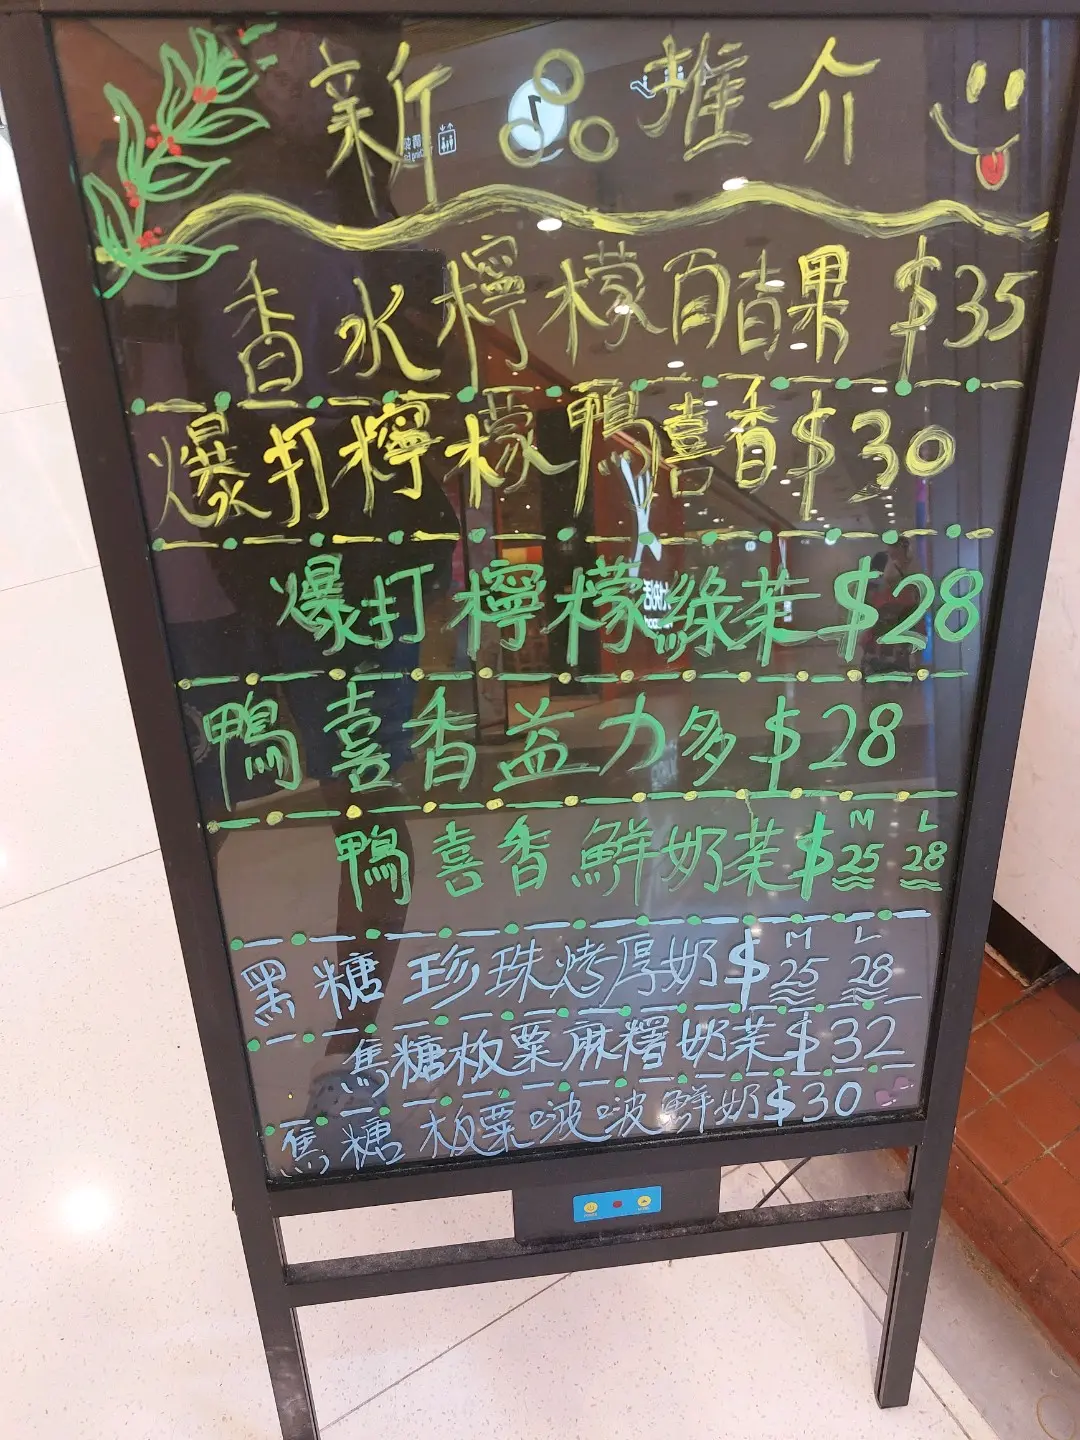 新品推介
香水檸檬百香果 $35
爆打檸檬鴨喜香 $30
爆打檸檬綠茶 $28
鴨喜香益力多 $28
鴨喜香鮮奶茶 $ M 25 L 28
黑糖珍珠烤厚奶 $ M 25 L 28
焦糖板栗麻糬奶茶 $32
焦糖板栗啵啵鮮奶 $30